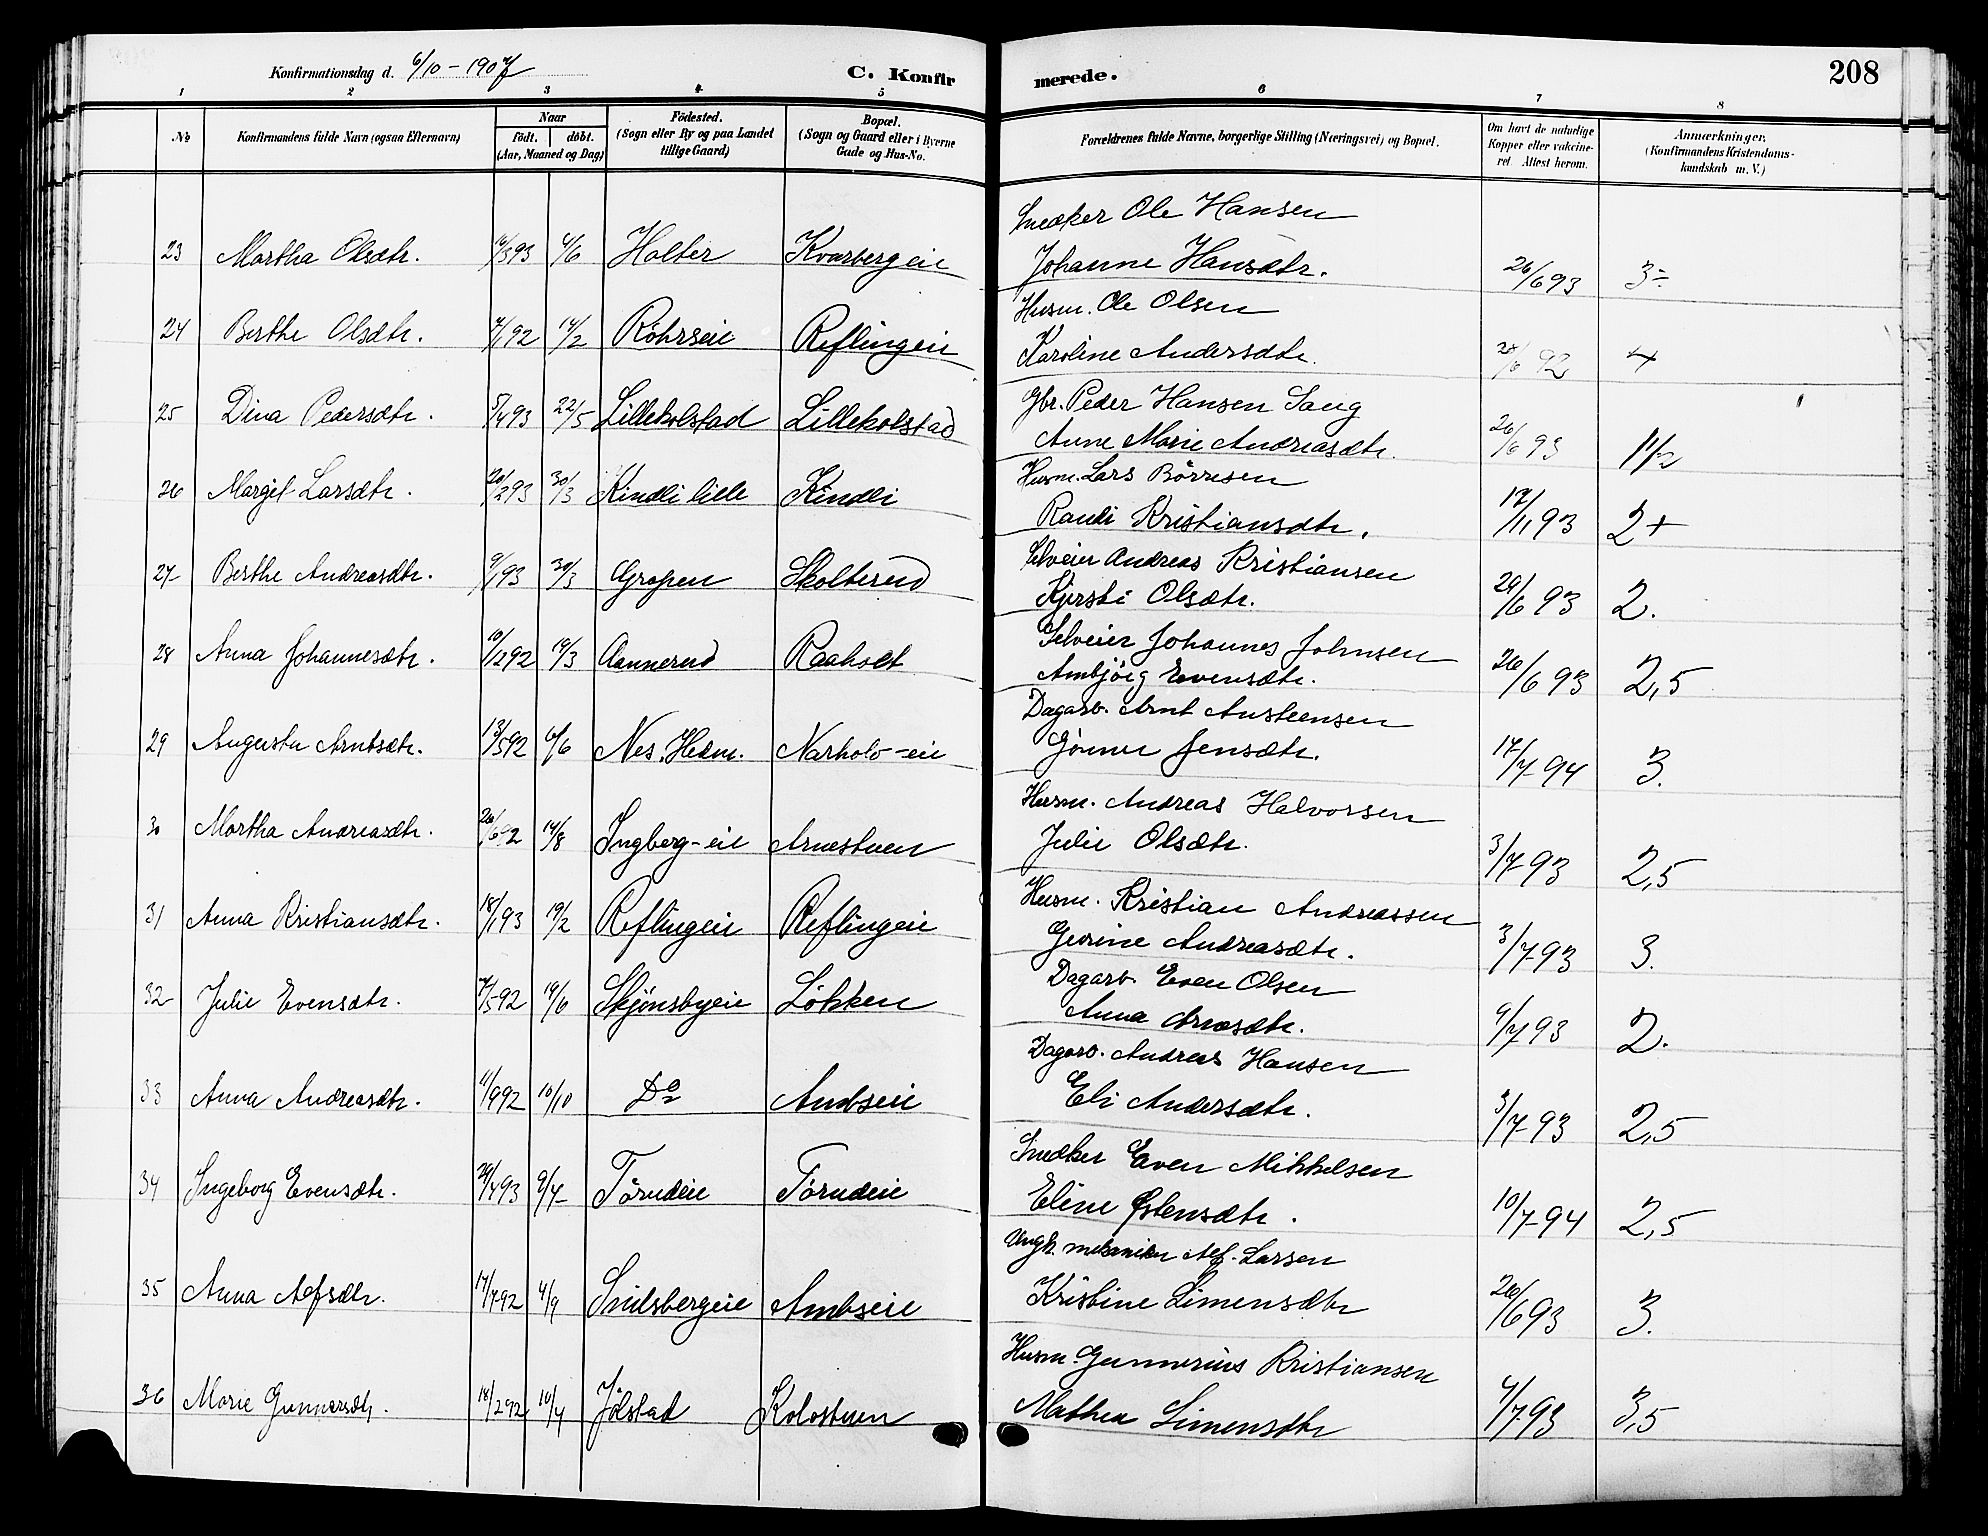 Konfirmationsdag d. 6/10 - 1907
C. Konfirmerede.
208
1 2 3 4 5 6 7 8
No
Konfirmandens fulde Navn (ogsaa Efternavn)
Naar
födt. döbt.
(Aar, Maaned og Dag)
Födested.
(Sogn eller By og paa Landet
tillige Gaard)
Bopæl.
(Sogn og Gaard eller i Byerne
Gade og Hus-No.
Forældrenes fulde Navne, borgerlige Stilling (Næringsvei) og Bopæl.
Om havt de naturlige
Kopper eller vakcine-
ret. Attest herom.
Anmærkninger,
(Konfirmandens Kristendoms-
kundskab m. V.)
Snedker Ole Hansen
23 Martha Olsdtr. 93 4/6 Holter Kvarbergeie Johanne Hansdtr. 26/6 93 3-
Husm. Ole Olsen
24 Berthe Olsdtr. 92 14/2 Röhrseie Reflingeie Karoline Andersdtr. 92 4
Gbr. Peder Hansen Saug
25 Dina Pedersdtr. 5/4 93 22/5 Lillekolstad Lillekolstad Anne Marie Andreasdtr. 26/6 93 1 1/2
Husm. Lars Börresen
26 Margit Larsdtr. 20/2 93 30/3 Kindli lille Kindli Randi Kristiansdtr. 17/11 93 2+
Selveier Andreas Kristiansen
27 Berthe Andreasdtr. 9/1 93 30/3 Gropen Skolterud Kjersti Olsdtr. 93 2.
Selveier Johannes Johnsen
28 Anna Johannesdtr. 10/12 92 19/3 Aannerud Raaholt Ambjörg Evensdtr. 26/6 93 2,5
Dagarb. Arnt Austeensen
29 Augusta Arntsdtr. 13/5 92 6/6 Nes, Hedm. Narholo-eie Gönner Jensdtr. 17/7 94 3.
Husm. Andreas Halvorsen
30 Martha Andreasdtr. 26/6 92 14/8 Ingberg-eie Arnestuen Julie Olsdtr. 3/7 93 2,5
Husm. Kristian Andreassen
31 Anna Kristiansdtr. 18/1 93 19/2 Reflingeie Reflingeie Gurine Andreasdtr. 3/7 93 3.
Dagarb. Even Olsen
32 Julie Evensdtr. 7/5 92 19/6 Skjønsbyeie Lökken Anna Arnesdtr. 6/7 93 2.
Dagarb. Andreas Hansen
33 Anna Andreasdtr. 11/9 92 10/10 Do Andseie Eli Andersdtr. 3/7 93 2,5
Snedker Even Mikkelsen
34 Ingeborg Evensdtr. 29/4 93 9/7 Törudeie Törudeie Eline Østensdtr. 10/7 94 2,5
Ungk. mekaniker Alf. Larsen
35 Anna Alfsdtr. 17/7 92 4/9 Smilsbergeie Andseie Kristine Simensdtr 26/6 93 3.
Husm. Gunnerius Kristiansen
36 Marie Gunnersdtr. 18/2 92 10/4 Jölstad Kolostuen Mathea Simensdtr 4/7 93 3,5